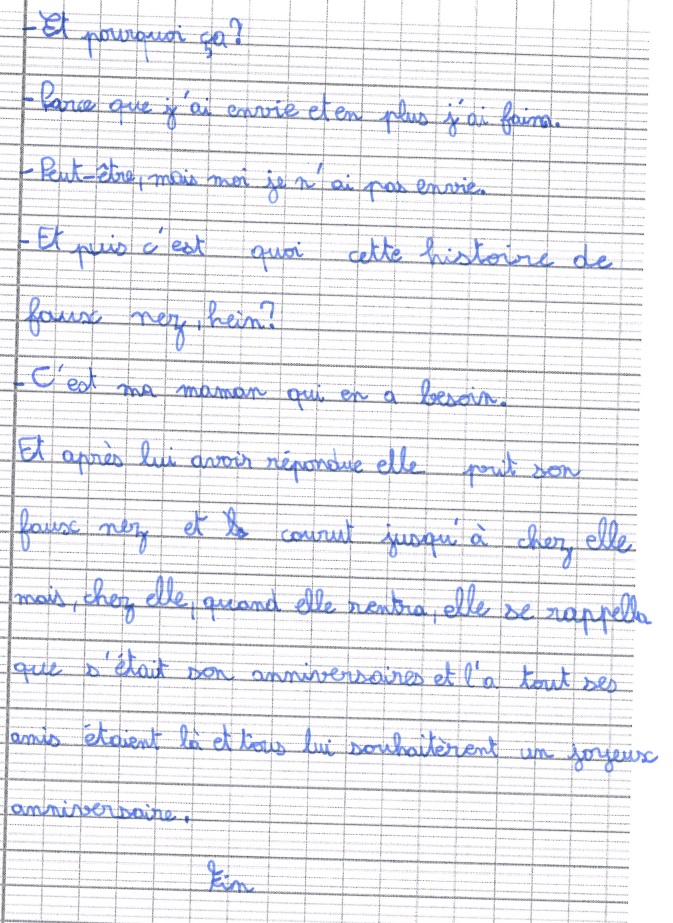 - Et pourquoi ça?
- Parce que j'ai envie et en plus j'ai faim.
- Peut-être, mais moi je n'ai pas envie.
- Et puis c'est quoi cette histoire de
faux nez, hein?
- C'est ma maman qui en a besoin.
Et après lui avoir répondue elle prit son
faux nez et courut jusqu'à chez elle
mais, chez elle, quand elle rentra, elle se rappella
que s'était son anniversaires et l'a tout ses
amis étaient là et tous lui souhaitèrent un joyeux
anniversaire.
Fin